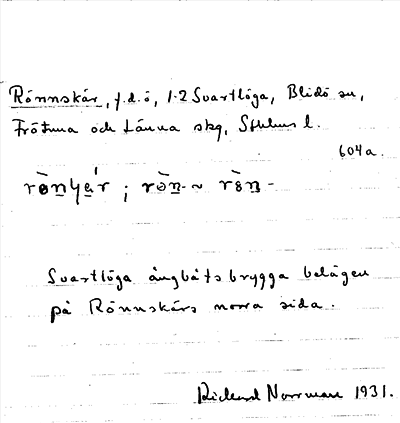 Rönnskär, f.d. ö, 1-2 Svartlöga, Blidö sn,
Frötuna och Länna skg, Sthlms l.
604a.
Svartlöga ångbåtsbrygga belägen
på Rönnskärs norra sida.
Rickard Norrman 1931.